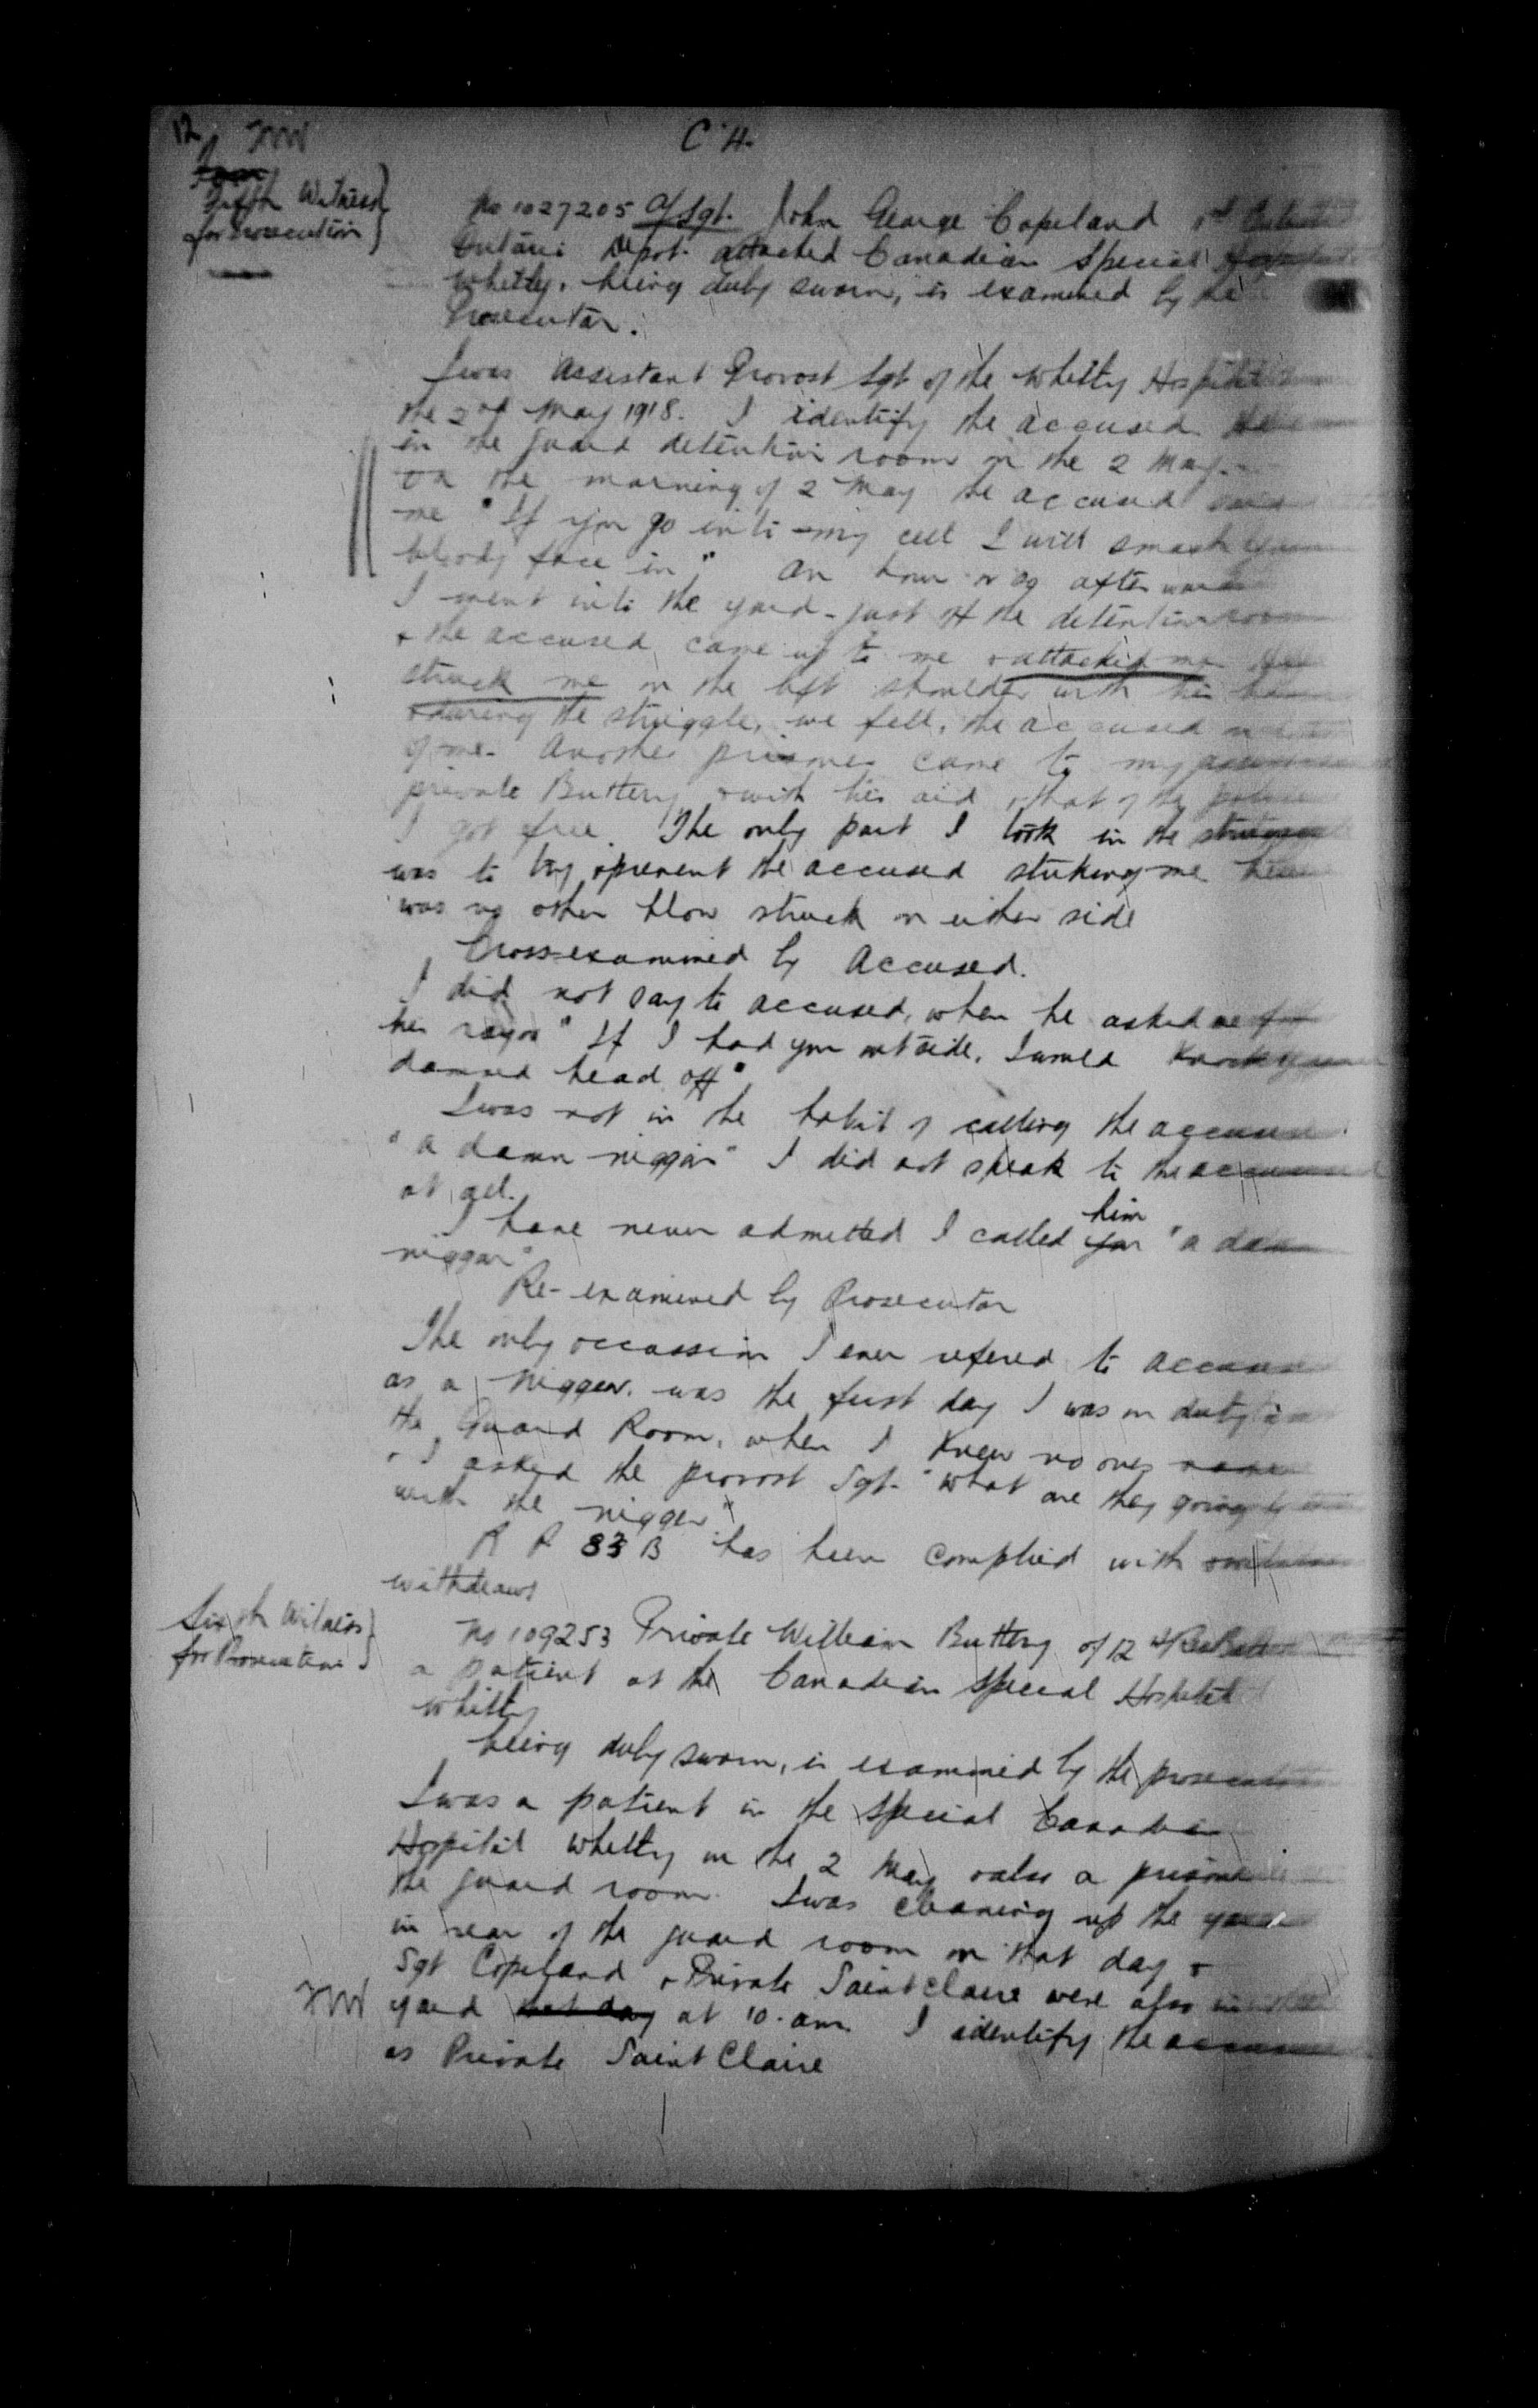 12
C H.
Fifth Witness
for Prosecution
No 1027205 A/Sgt. John George Copeland 1st
Ontario Depot. attached Canadian Special
Whitly, being duly sworn, is examined by the
Prosecutor.
I was Assistant Provost Sgt of the Whitly Hospital
the 2nd May 1918. I identify the accused.
in the guard detention room on the 2 May.
On the morning of 2 May the accused said
me "If you go into my cell I will smash your
bloody face in" An hour or so afterward
I went into the yard - just off the detention room
+ the accused came up to me + attacked me
struck me on the left shoulder with his
+ during the struggle, we fell, the accused on
of me. Another prisoner came to my
private Buttery + with his aid + that of the
I got free. The only part I took in the struggle
was to try + prevent the accused striking me
was no other blow struck on either side
Cross-examined by Accused.
I did not say to accused, when he asked me for
his razor "If I had you outside, I would knock your
damned head off"
I was not in the habit of calling the accused
"a damn niggar" I did not speak to the accused
at all.
him
I have never admitted I called you "a damn
niggar"
Re-examined by Prosecutor
The only occassion I ever refered to accused
as a nigger. was the first day I was on duty in
the Guard Room, when I knew no ones name
+ I asked the provost Sgt. "what are they going to
with the nigger"
R P 83 B has been complied with
withdraws
Sixth Witness
for Prosecution
No 109253 Private William Buttery of 12
a patient at the Canadian Special Hospital
Whitly
being duly sworn, is examined by the prosecutor
I was a patient in the Special Canadian
Hospital Whitly on the 2 May + also a prisoner
the guard room. I was cleaning up the yard
in rear of the guard room on that day +
Sgt Copeland + Private Saint Claire were also in
yard that day at 10. am. I identify the accused
as Private Saint Claire